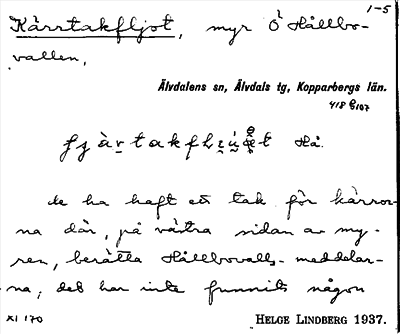 1-5
Kärrtakfljot, myr Ö Hållbo-
vallen,
Älvdalens sn, Älvdals tg, Kopparbergs län.
418
Hå.
de ha haft ett tak för kärror-
na där, på västra sidan av my-
ren, berätta Hållbovalls-meddelar-
na; det har inte funnits någon
XI 170 HELGE LINDBERG 1937.